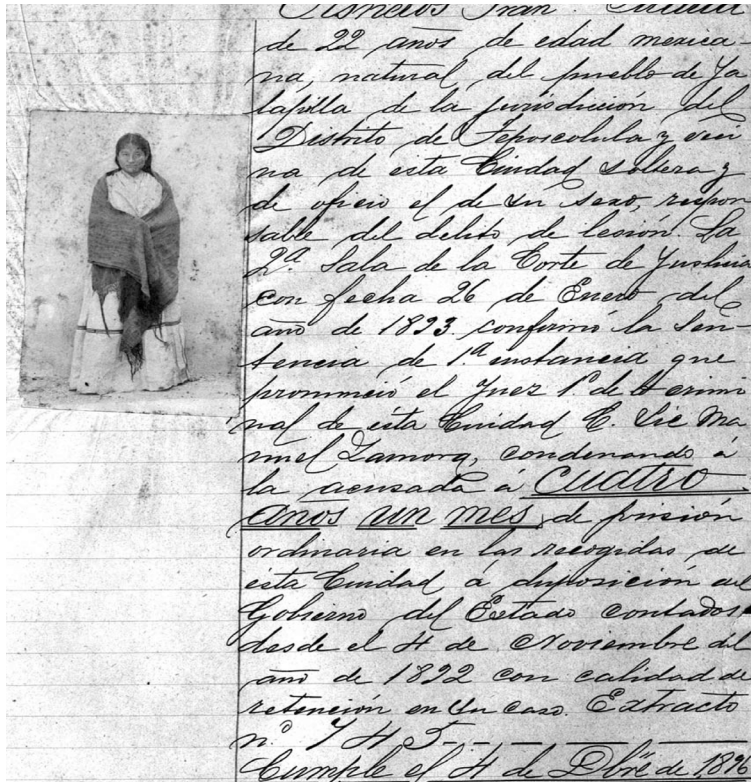 Cisneros Fran.
de 22 años de edad mexica-
na, natural del pueblo de Ya
lapilla de la jurisdicción del
Distrito de Teposcolula y veci
na de esta Ciudad soltera y
de oficio el de su sexo, respon
sable del delito de lesión. La
2ª Sala de la Corte de Justicia
con fecha 26 de Enero del
año de 1893 confirmó la Sen-
tencia de 1ª instancia que
pronunció el Juez 1º de
nal de ésta Ciudad C. Lic Ma
nuel Zamora, condenando á
la acusada á cuatro
años un mes de prisión
ordinaria en las recogidas de
ésta Ciudad á disposición del
Gobierno del Estado contados
desde el 4 de Noviembre del
año de 1892 con calidad de
retención en su caso. Extracto
nº 745
Cumple el 4 de Dbre de 1896